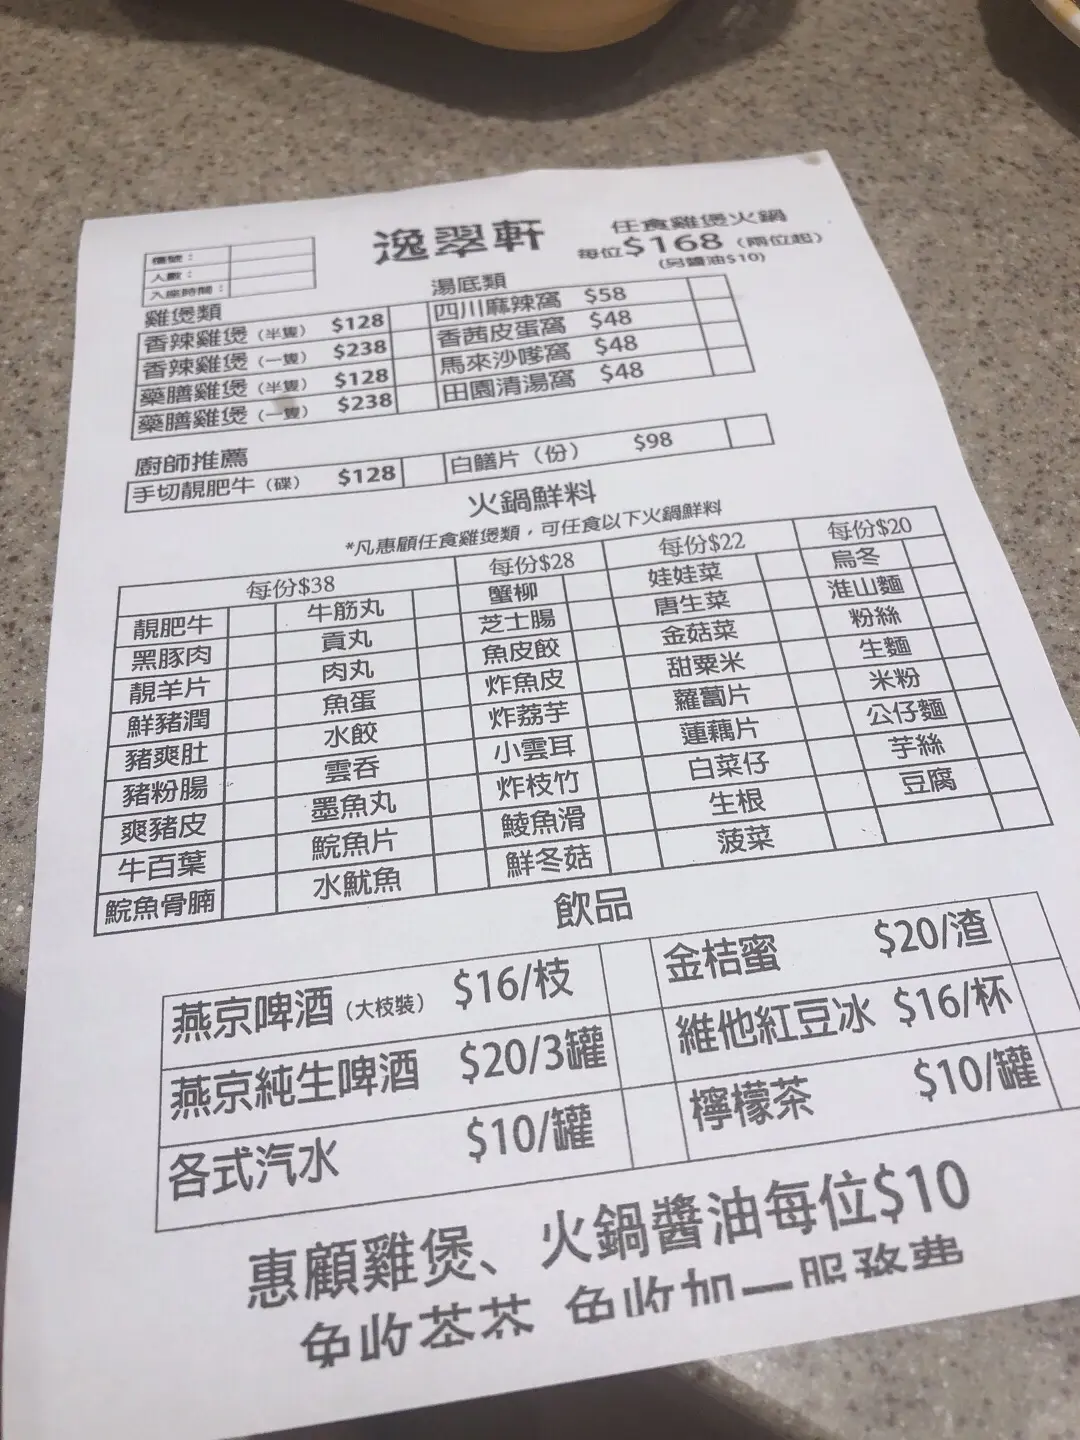 逸翠軒
任食雞煲火鍋
每位$168（兩位起）
（另醬油$10）
檯號：
人數：
入座時間：
雞煲類
香辣雞煲（半隻） $128
香辣雞煲（一隻） $238
藥膳雞煲（半隻） $128
藥膳雞煲（一隻） $238
湯底類
四川麻辣窩 $58
香茜皮蛋窩 $48
馬來沙嗲窩 $48
田園清湯窩 $48
廚師推薦
手切靚肥牛（碟） $128 白鱔片（份） $98
火鍋鮮料
*凡惠顧任食雞煲類，可任食以下火鍋鮮料
每份$38 每份$28 每份$22 每份$20
靚肥牛 牛筋丸 蟹柳 娃娃菜 烏冬
黑豚肉 貢丸 芝士腸 唐生菜 淮山麵
靚羊片 肉丸 魚皮餃 金菇菜 粉絲
鮮豬潤 魚蛋 炸魚皮 甜粟米 生麵
豬爽肚 水餃 炸荔芋 蘿蔔片 米粉
豬粉腸 雲吞 小雲耳 蓮藕片 公仔麵
爽豬皮 墨魚丸 炸枝竹 白菜仔 芋絲
牛百葉 鯇魚片 鯪魚滑 生根 豆腐
鯇魚骨腩 水魷魚 鮮冬菇 菠菜
飲品
燕京啤酒（大枝裝） $16/枝 金桔蜜 $20/渣
燕京純生啤酒 $20/3罐 維他紅豆冰 $16/杯
各式汽水 $10/罐 檸檬茶 $10/罐
惠顧雞煲、火鍋醬油每位$10
免收茶芥 免收加一服務費